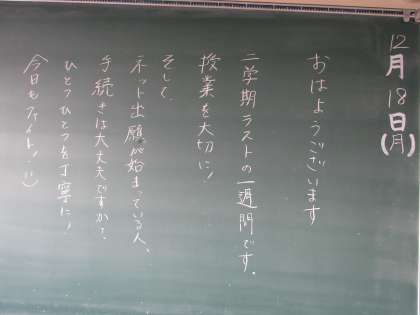 12月18日(月)
おはようございます
二学期ラストの一週間です。
授業を大切に!
そして、
ネット出願が始まっている人、
手続きは大丈夫ですか?
ひとつひとつを丁寧に!
今日もファイト!:)